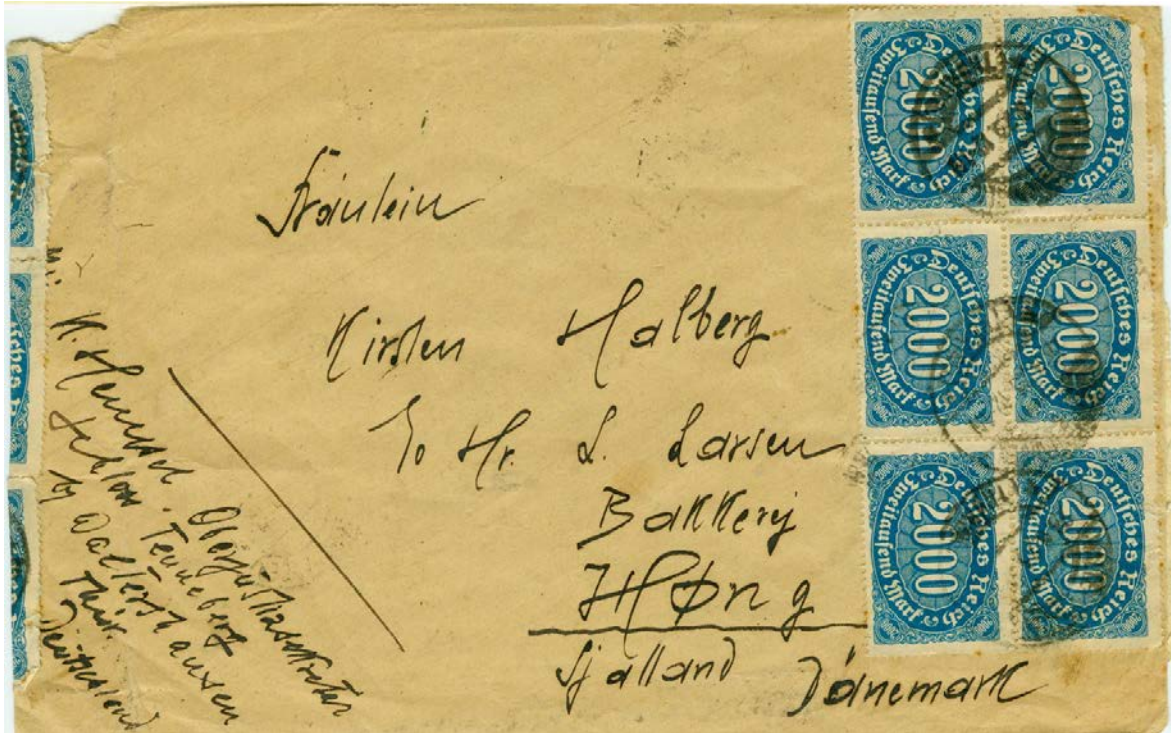 Fräulein
Kirsten Halberg
c/o Hr. L. Larsen
Bakkery
Høng
Sjalland Dänemark
K. Hentschel Oberjustizsekretär
Schloss Tenneberg
by Waltershausen
Thür.
Deutschland
Deutsches Reich
2000
Zweitausend Mark
Deutsches Reich
2000
Zweitausend Mark
Deutsches Reich
2000
Zweitausend Mark
Deutsches Reich
2000
Zweitausend Mark
Deutsches Reich
2000
Zweitausend Mark
Deutsches Reich
2000
Zweitausend Mark